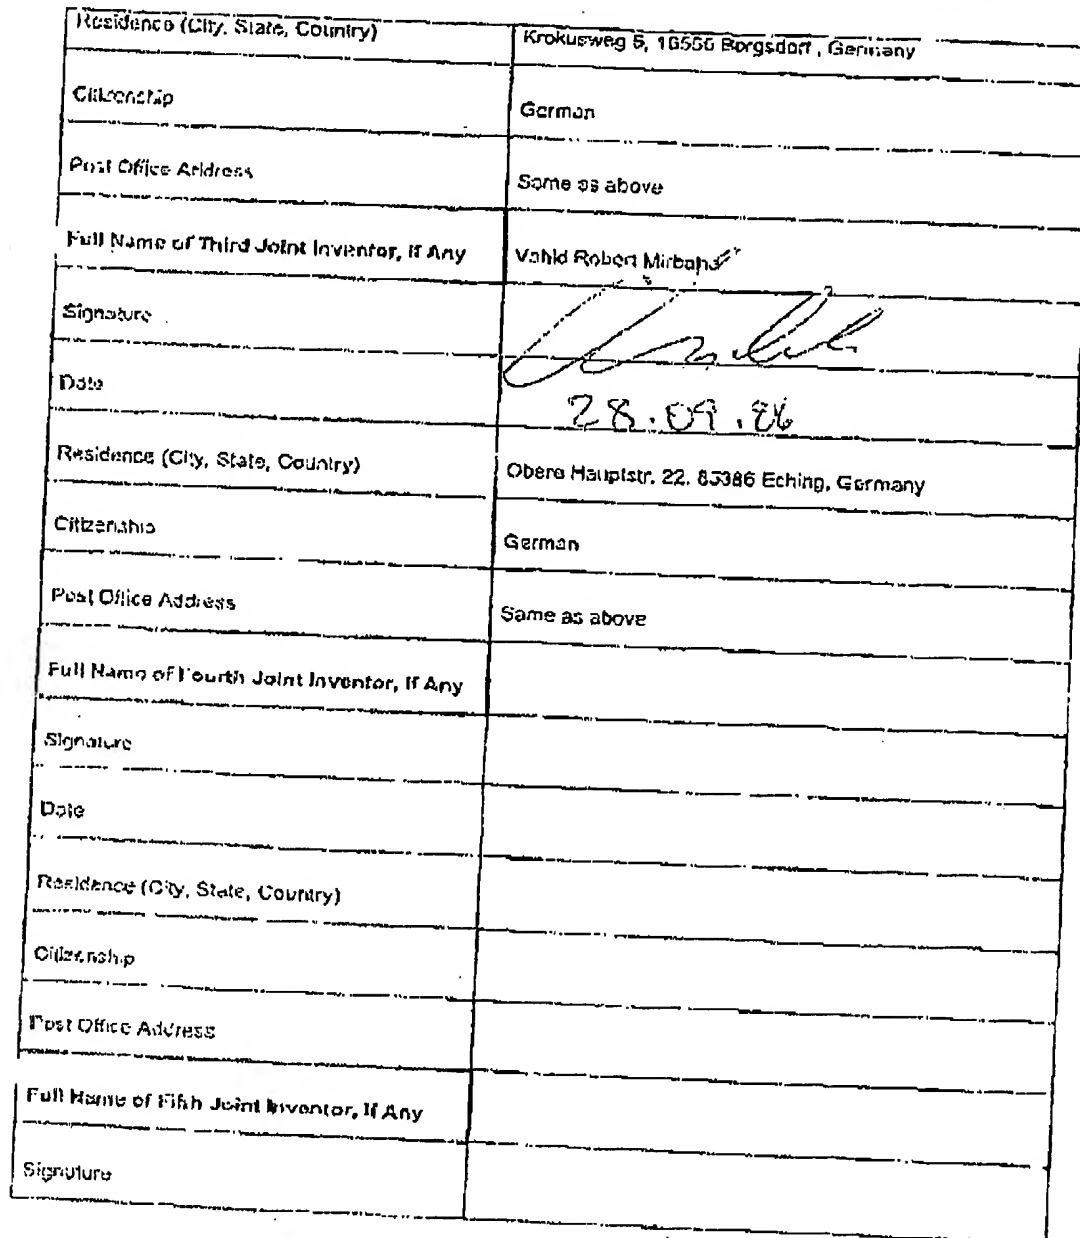 Residence (City, State, Country) Krokusweg 5, 16556 Borgsdorf , Germany
Citizenship German
Post Office Address Same as above
Full Name of Third Joint Inventor, If Any Vahid Robert
Signature
Date 28.09.
Residence (City, State, Country) Obere Hauptstr. 22, 85386 Eching, Germany
Citizenship German
Post Office Address Same as above
Full Name of Fourth Joint Inventor, If Any
Signature
Date
Residence (City, State, Country)
Citizenship
Post Office Address
Full Name of Fifth Joint Inventor, If Any
Signature